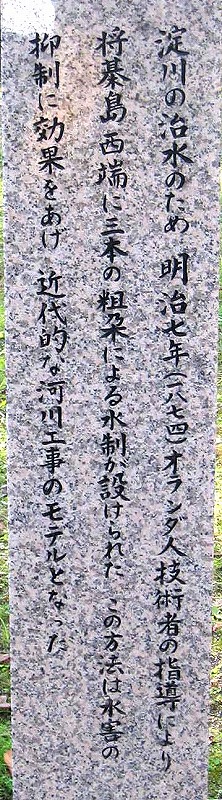 淀川の治水のため 明治七年(一八七四)オランダ人技術者の指導により
将棊島西端に三本の粗朶による水制が設けられた この方法は水害の
抑制に効果をあげ 近代的な河川工事のモデルとなった